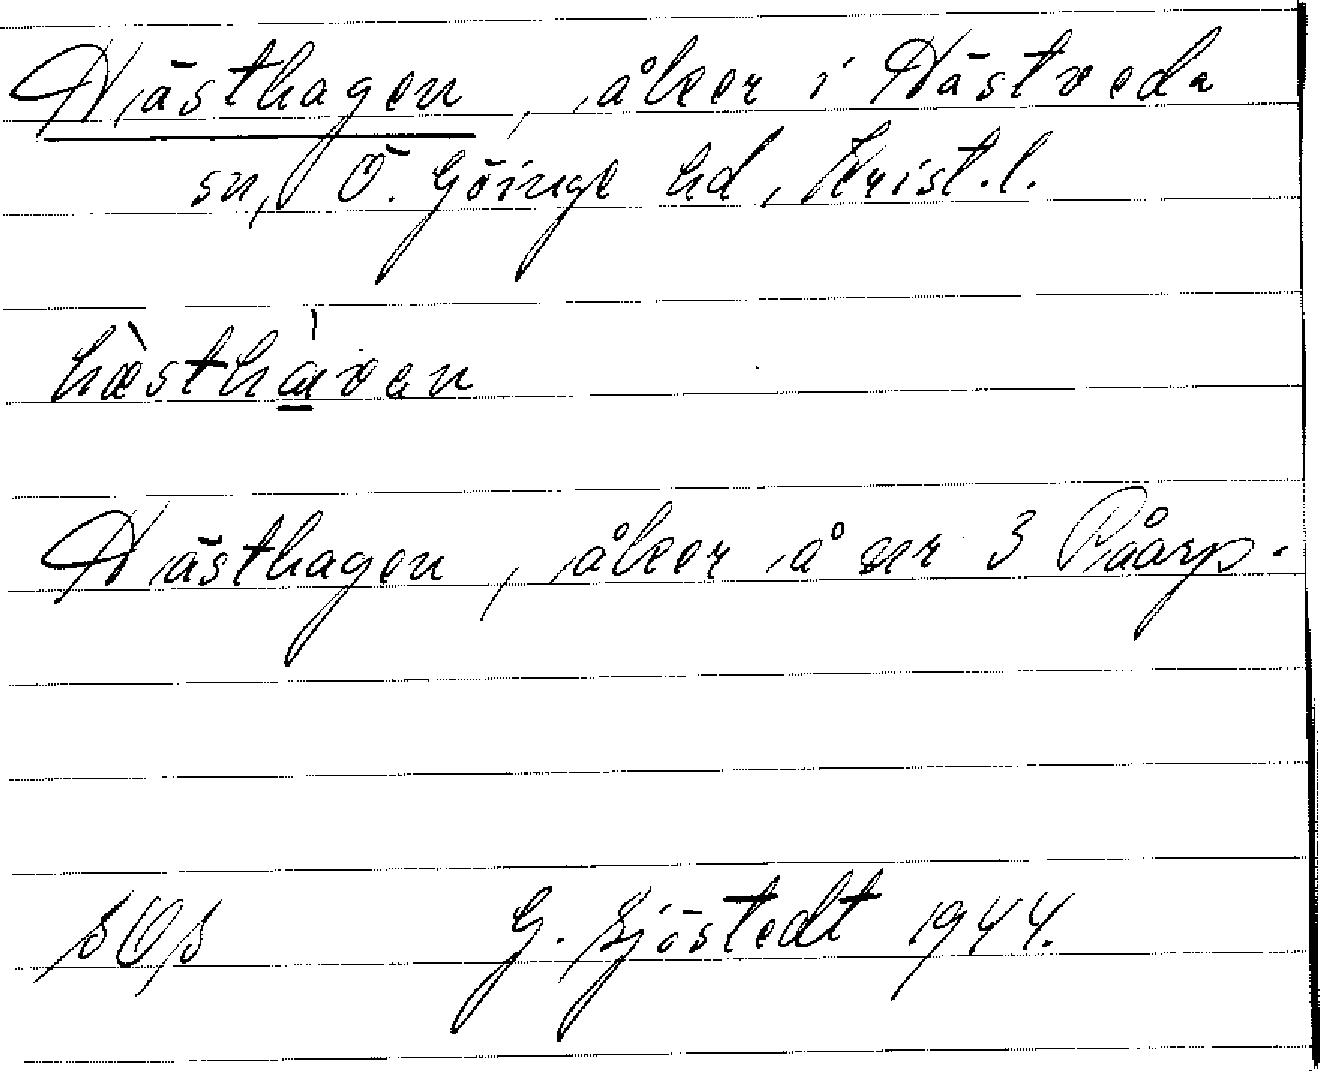 Hästhagen, åker i Hästveda
sn, Ö. Göinge hd, Krist.l.
hæ̀sthạ̄̀van
Hästhagen, åker å nr 3 Påarp.
SOS G. Sjöstedt 1944.